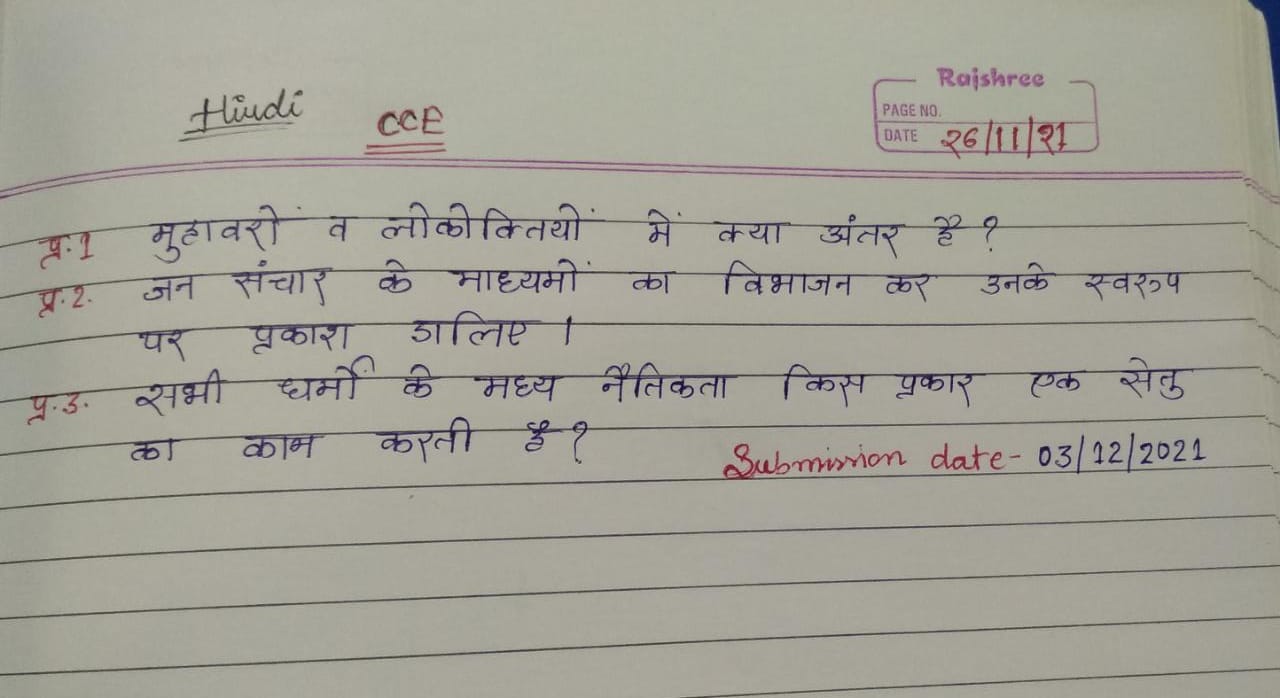 Hindi CCE
Rajshree
PAGE NO.
DATE 26/11/21
प्र.1 मुहावरों व लोकोक्तियों में क्या अंतर है ?
प्र.2. जन संचार के माध्यमों का विभाजन कर उनके स्वरुप
पर प्रकाश डालिए ।
प्र.3. सभी धर्मों के मध्य नैतिकता किस प्रकार एक सेतु
का काम करती है ?
Submission date - 03/12/2021